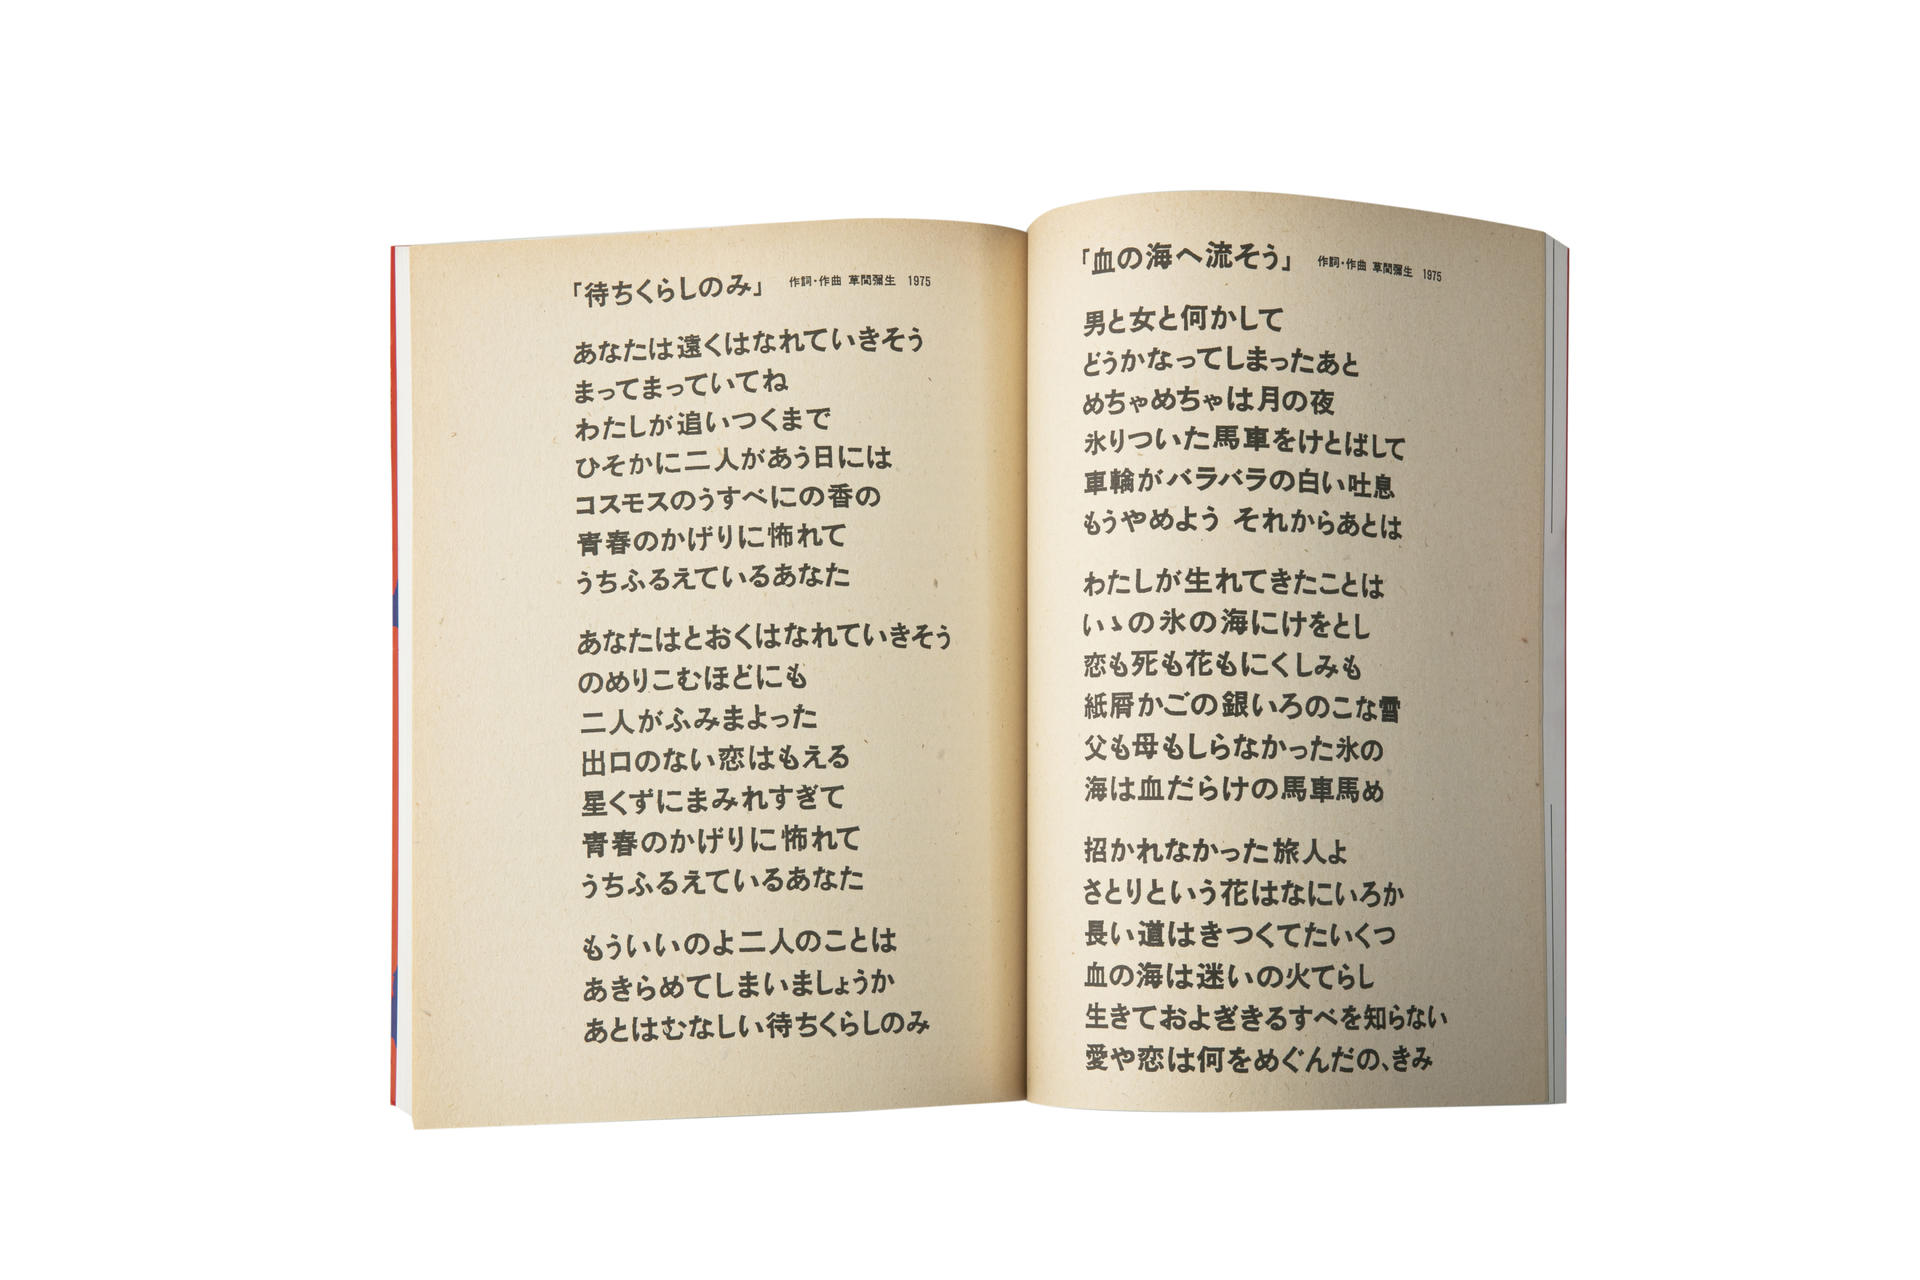 「待ちくらしのみ」 作詞・作曲 草間彌生 1975
あなたは遠くはなれていきそう
まってまっていてね
わたしが追いつくまで
ひそかに二人があう日には
コスモスのうすべにの香の
青春のかげりに怖れて
うちふるえているあなた
あなたはとおくはなれていきそう
のめりこむほどにも
二人がふみまよった
出口のない恋はもえる
星くずにまみれすぎて
青春のかげりに怖れて
うちふるえているあなた
もういいのよ二人のことは
あきらめてしまいましょうか
あとはむなしい待ちくらしのみ
「血の海へ流そう」 作詞・作曲 草間彌生 1975
男と女と何かして
どうかなってしまったあと
めちゃめちゃは月の夜
氷りついた馬車をけとばして
車輪がバラバラの白い吐息
もうやめよう それからあとは
わたしが生れてきたことは
いゝの氷の海にけをとし
恋も死も花もにくしみも
紙屑かごの銀いろのこな雪
父も母もしらなかった氷の
海は血だらけの馬車馬め
招かれなかった旅人よ
さとりという花はなにいろか
長い道はきつくてたいくつ
血の海は迷いの火てらし
生きておよぎきるすべを知らない
愛や恋は何をめぐんだの、きみ